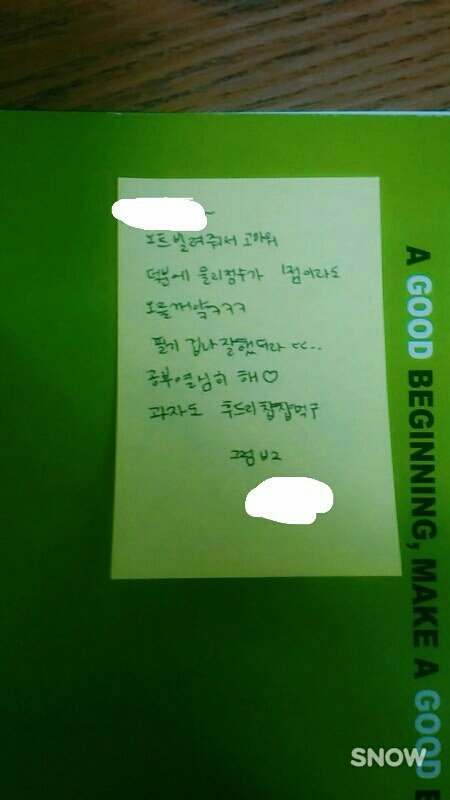 ~
노트빌려줘서 고마워
덕분에 물리점수가 1점이라도
오를꺼야ㅋㅋㅋ
필기 겁나잘했더라 ㄷㄷ..
공부열심히 해♡
과자도 후드리찹찹먹구
그럼 ㅂ2
A GOOD BEGINNING, MAKE A GOOD
SNOW